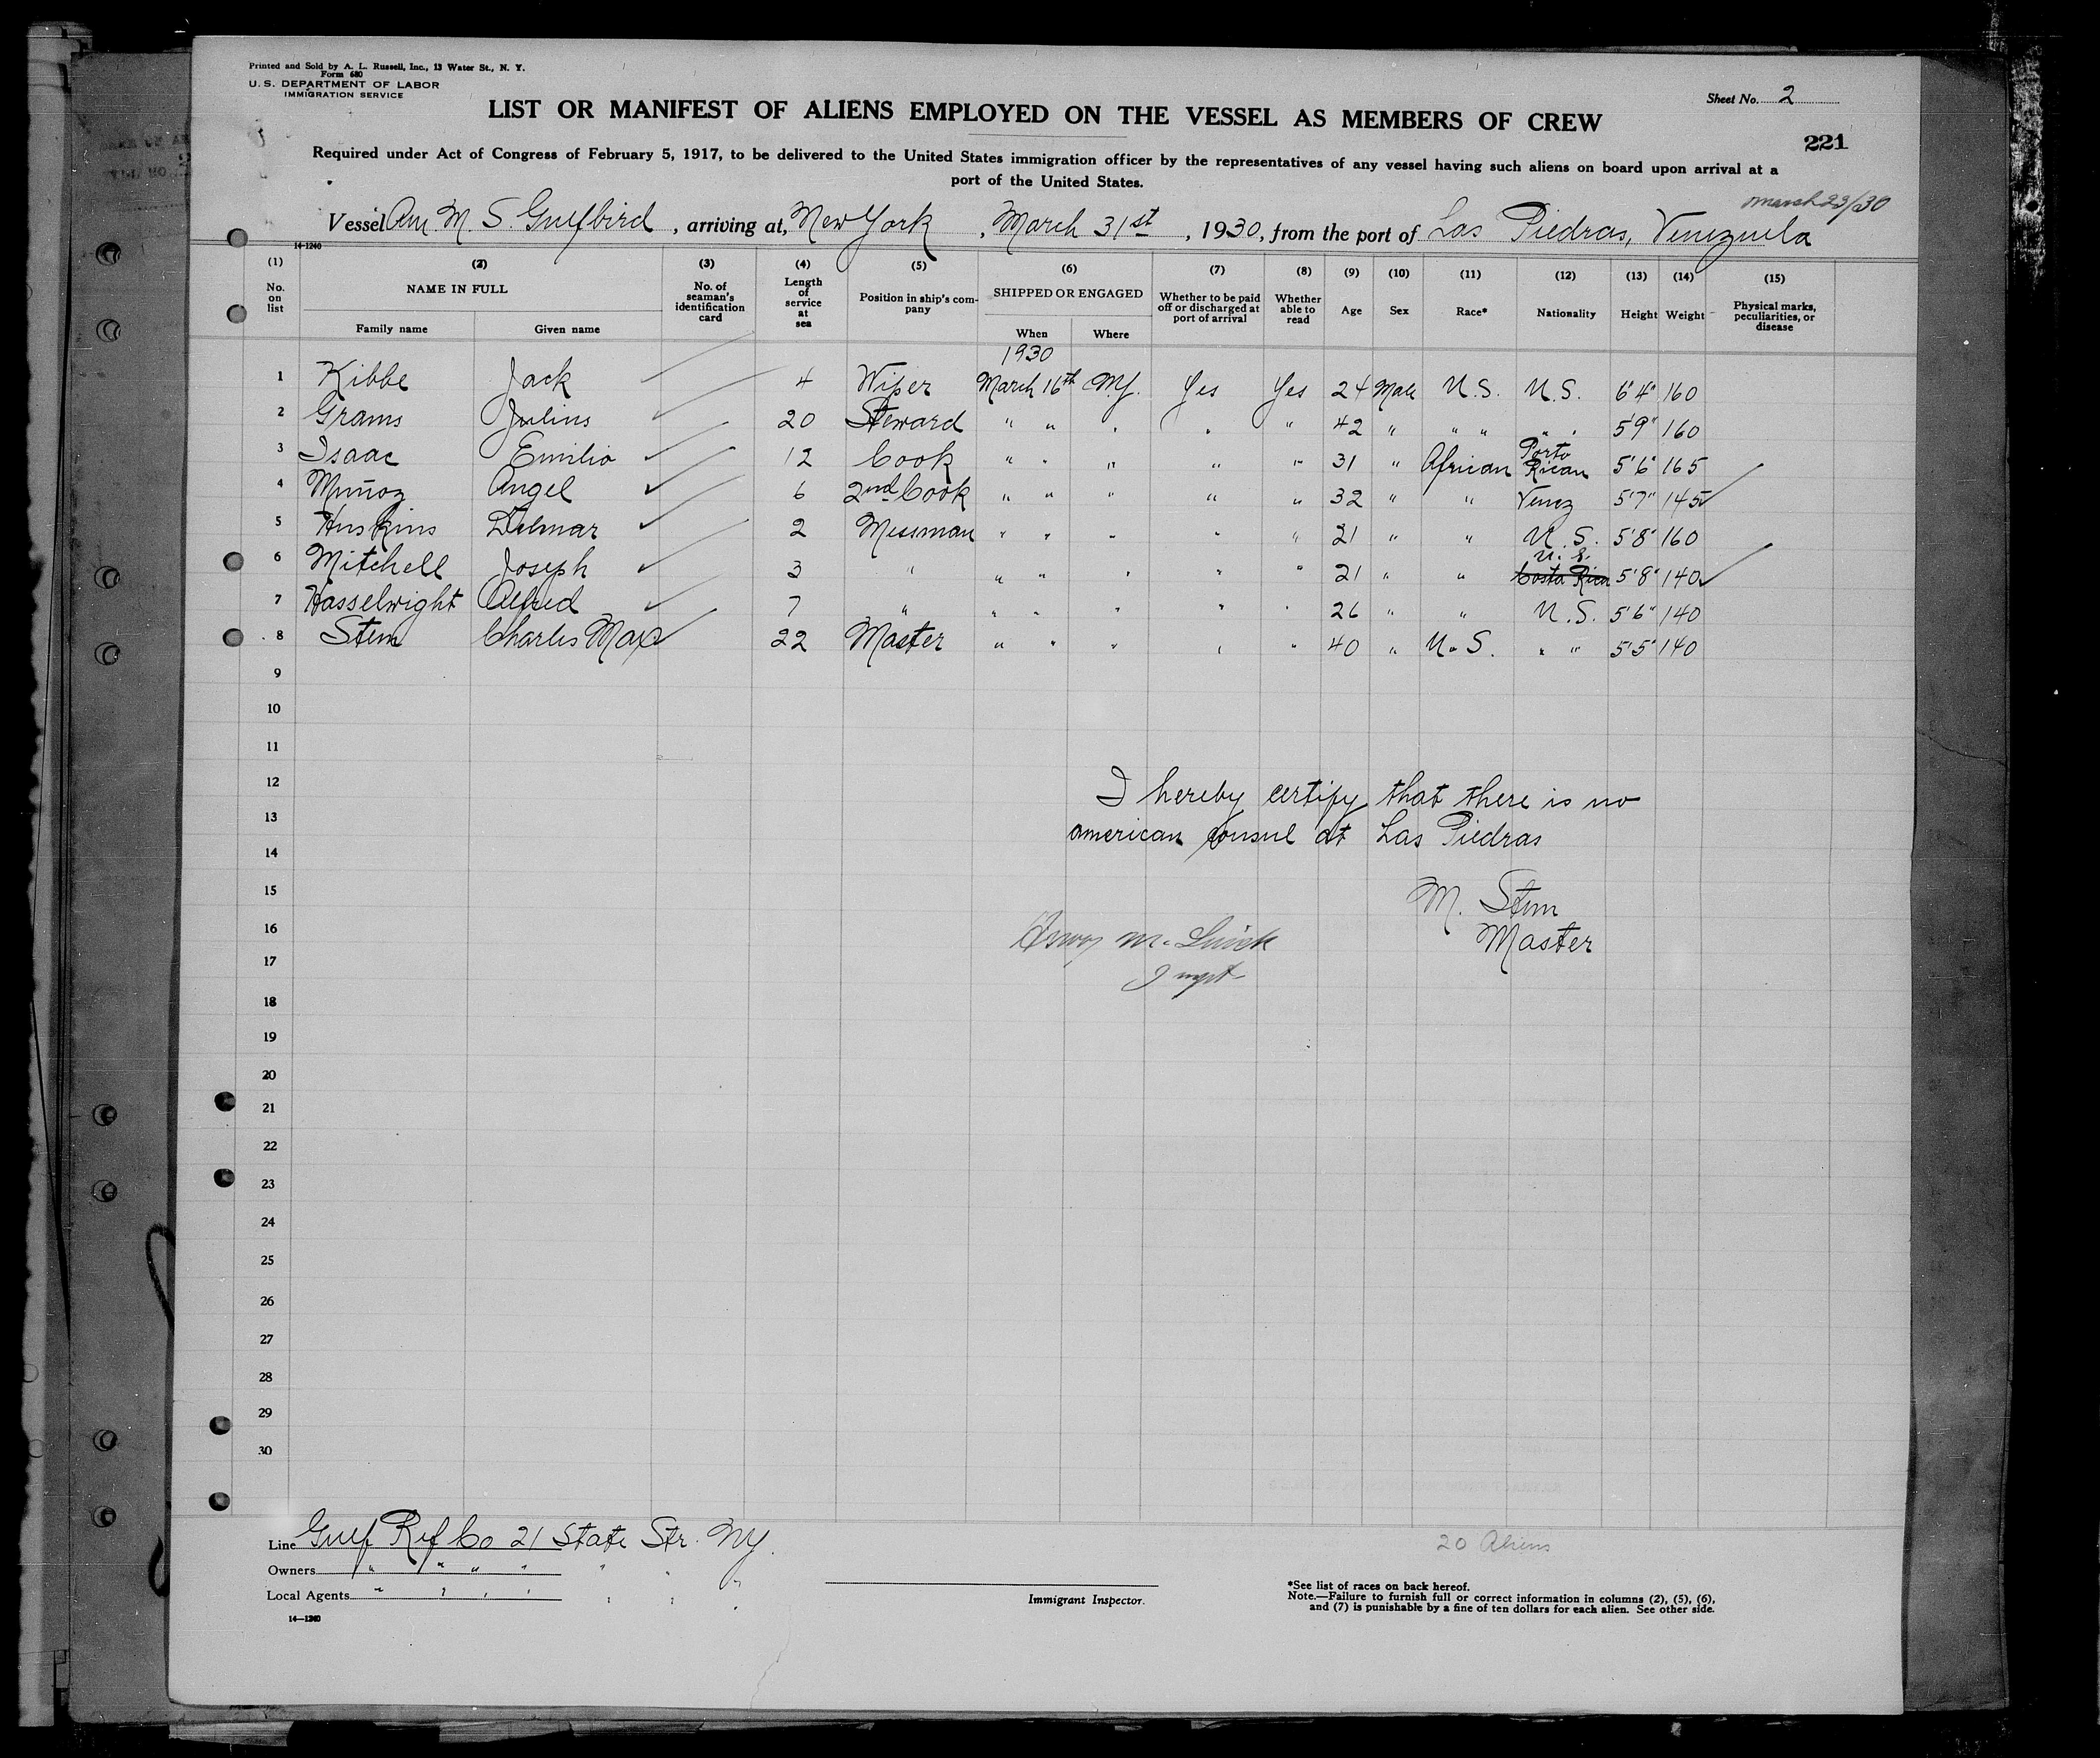 Printed and Sold by A. L. Russell, Inc., 13 Water St., N. Y.
Form 680
U. S. DEPARTMENT OF LABOR
IMMIGRATION SERVICE
Sheet No. 2
LIST OR MANIFEST OF ALIENS EMPLOYED ON THE VESSEL AS MEMBERS OF CREW
221
Required under Act of Congress of February 5, 1917, to be delivered to the United States immigration officer by the representatives of any vessel having such aliens on board upon arrival at a
port of the United States.
March 23/30
Vessel Am M. S. Gulfbird, arriving at, New York, March 31st, 1930, from the port of Las Piedras, Venezuela
14-1240
(1) (2) (3) (4) (5) (6) (7) (8) (9) (10) (11) (12) (13) (14) (15)
No. on list NAME IN FULL Family name Given name No. of seaman's identification card Length of service at sea Position in ship's company SHIPPED OR ENGAGED When Where Whether to be paid off or discharged at port of arrival Whether able to read Age Sex Race* Nationality Height Weight Physical marks, peculiarities, or disease
1930
1 Kibbe Jack 4 Wiper March 16th N.Y. Yes Yes 24 Male U.S. U.S. 6'4" 160
2 Grams Julius 20 Steward " " " " " 42 " " " " " 5'9" 160
3 Isaac Emilio 12 Cook " " " " " 31 " African Porto Rican 5'6" 165
4 Muñoz Angel 6 2nd Cook " " " " " 32 " " Venez 5'7" 145
5 Huskins Delmar 2 Messman " " " " " 21 " " U.S. 5'8" 160
6 Mitchell Joseph 3 " " " " " " 21 " " U.S. Costa Rica 5'8" 140
7 Hasselwight Alfred 7 " " " " " " 26 " " U.S. 5'6" 140
8 Stem Charles Max 22 Master " " " " " 40 " U.S. " " 5'5" 140
9
10
11
12
13
14
15
16
17
18
19
20
21
22
23
24
25
26
27
28
29
30
I hereby certify that there is no
american consul at Las Piedras
M. Stem
Master
M.
Inspt
Line Gulf Ref Co 21 State Str. NY.
Owners " " " " " " "
Local Agents " " " " " " "
14—1240
20 Aliens
Immigrant Inspector.
*See list of races on back hereof.
Note.—Failure to furnish full or correct information in columns (2), (5), (6),
and (7) is punishable by a fine of ten dollars for each alien. See other side.